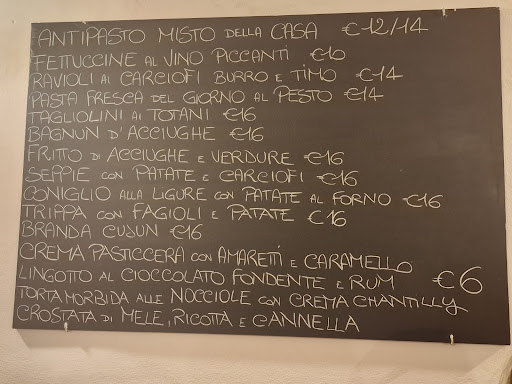 ANTIPASTO MISTO DELLA CASA €12/14
FETTUCCINE AL VINO PICCANTI €10
RAVIOLI AI CARCIOFI BURRO E TIMO €14
PASTA FRESCA DEL GIORNO AL PESTO €14
TAGLIOLINI AI TOTANI €16
BAGNUN D'ACCIUGHE €16
FRITTO DI ACCIUGHE E VERDURE €16
SEPPIE CON PATATE E CARCIOFI €16
CONIGLIO ALLA LIGURE CON PATATE AL FORNO €16
TRIPPA CON FAGIOLI E PATATE €16
BRANDA CUJUN €16
CREMA PASTICCERA CON AMARETTI E CARAMELLO
LINGOTTO AL CIOCCOLATO FONDENTE E RUM €6
TORTA MORBIDA ALLE NOCCIOLE CON CREMA CHANTILLY
CROSTATA DI MELE, RICOTTA E CANNELLA